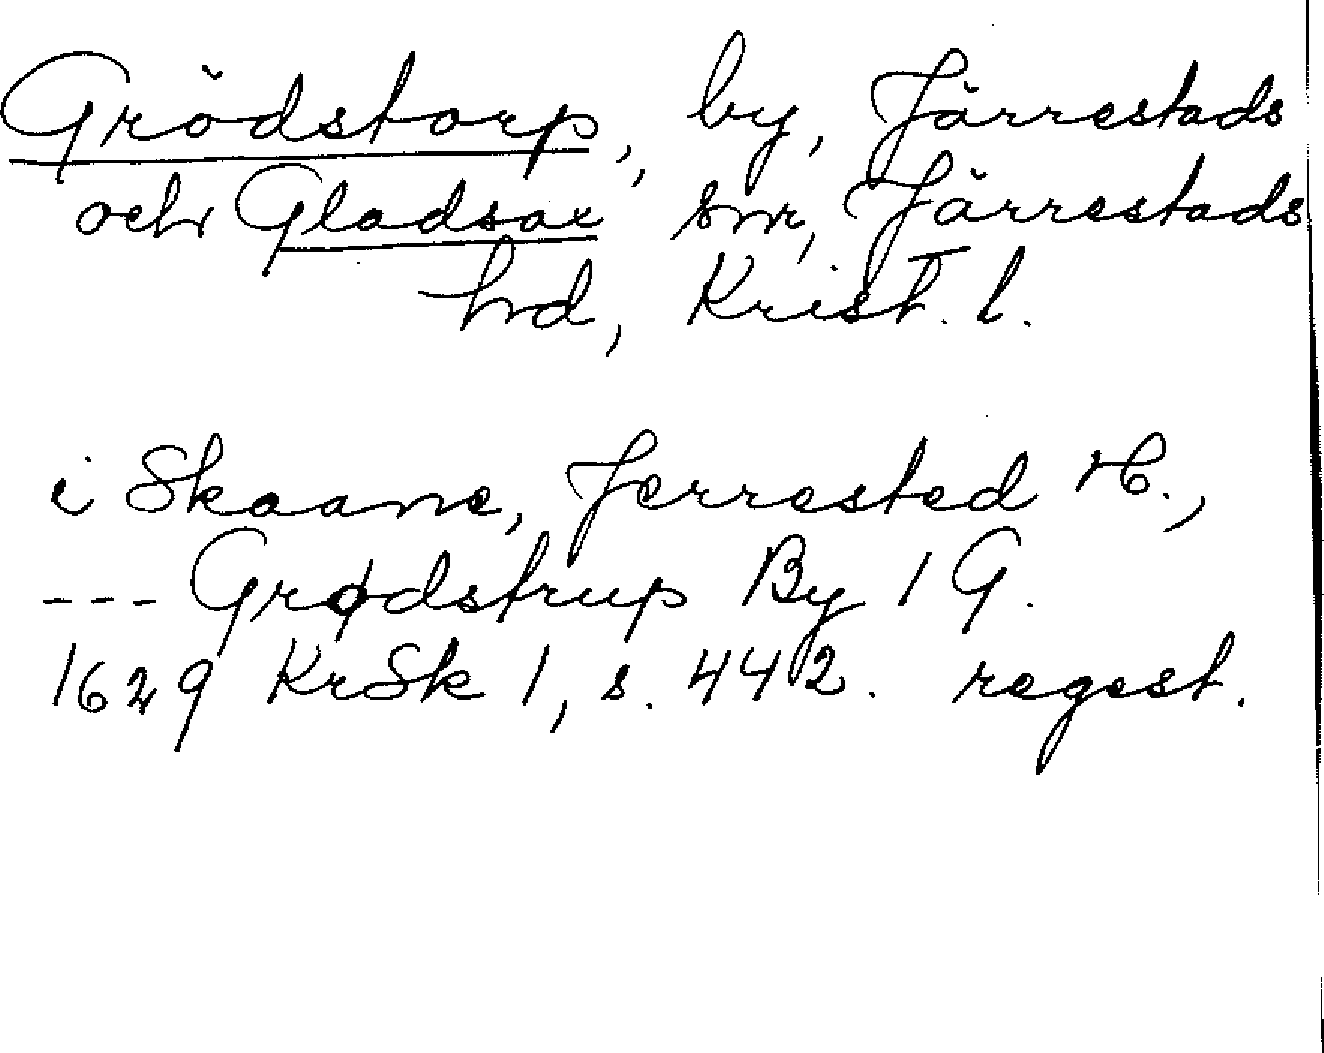 Grödstorp, by, Järrestads
och Gladsax snr, Järrestads
hd, Krist. l.
i Skaane, Jerrested H.,
--- Grødstrup By 1 G.
1629 KrSk 1, s. 442. regest.